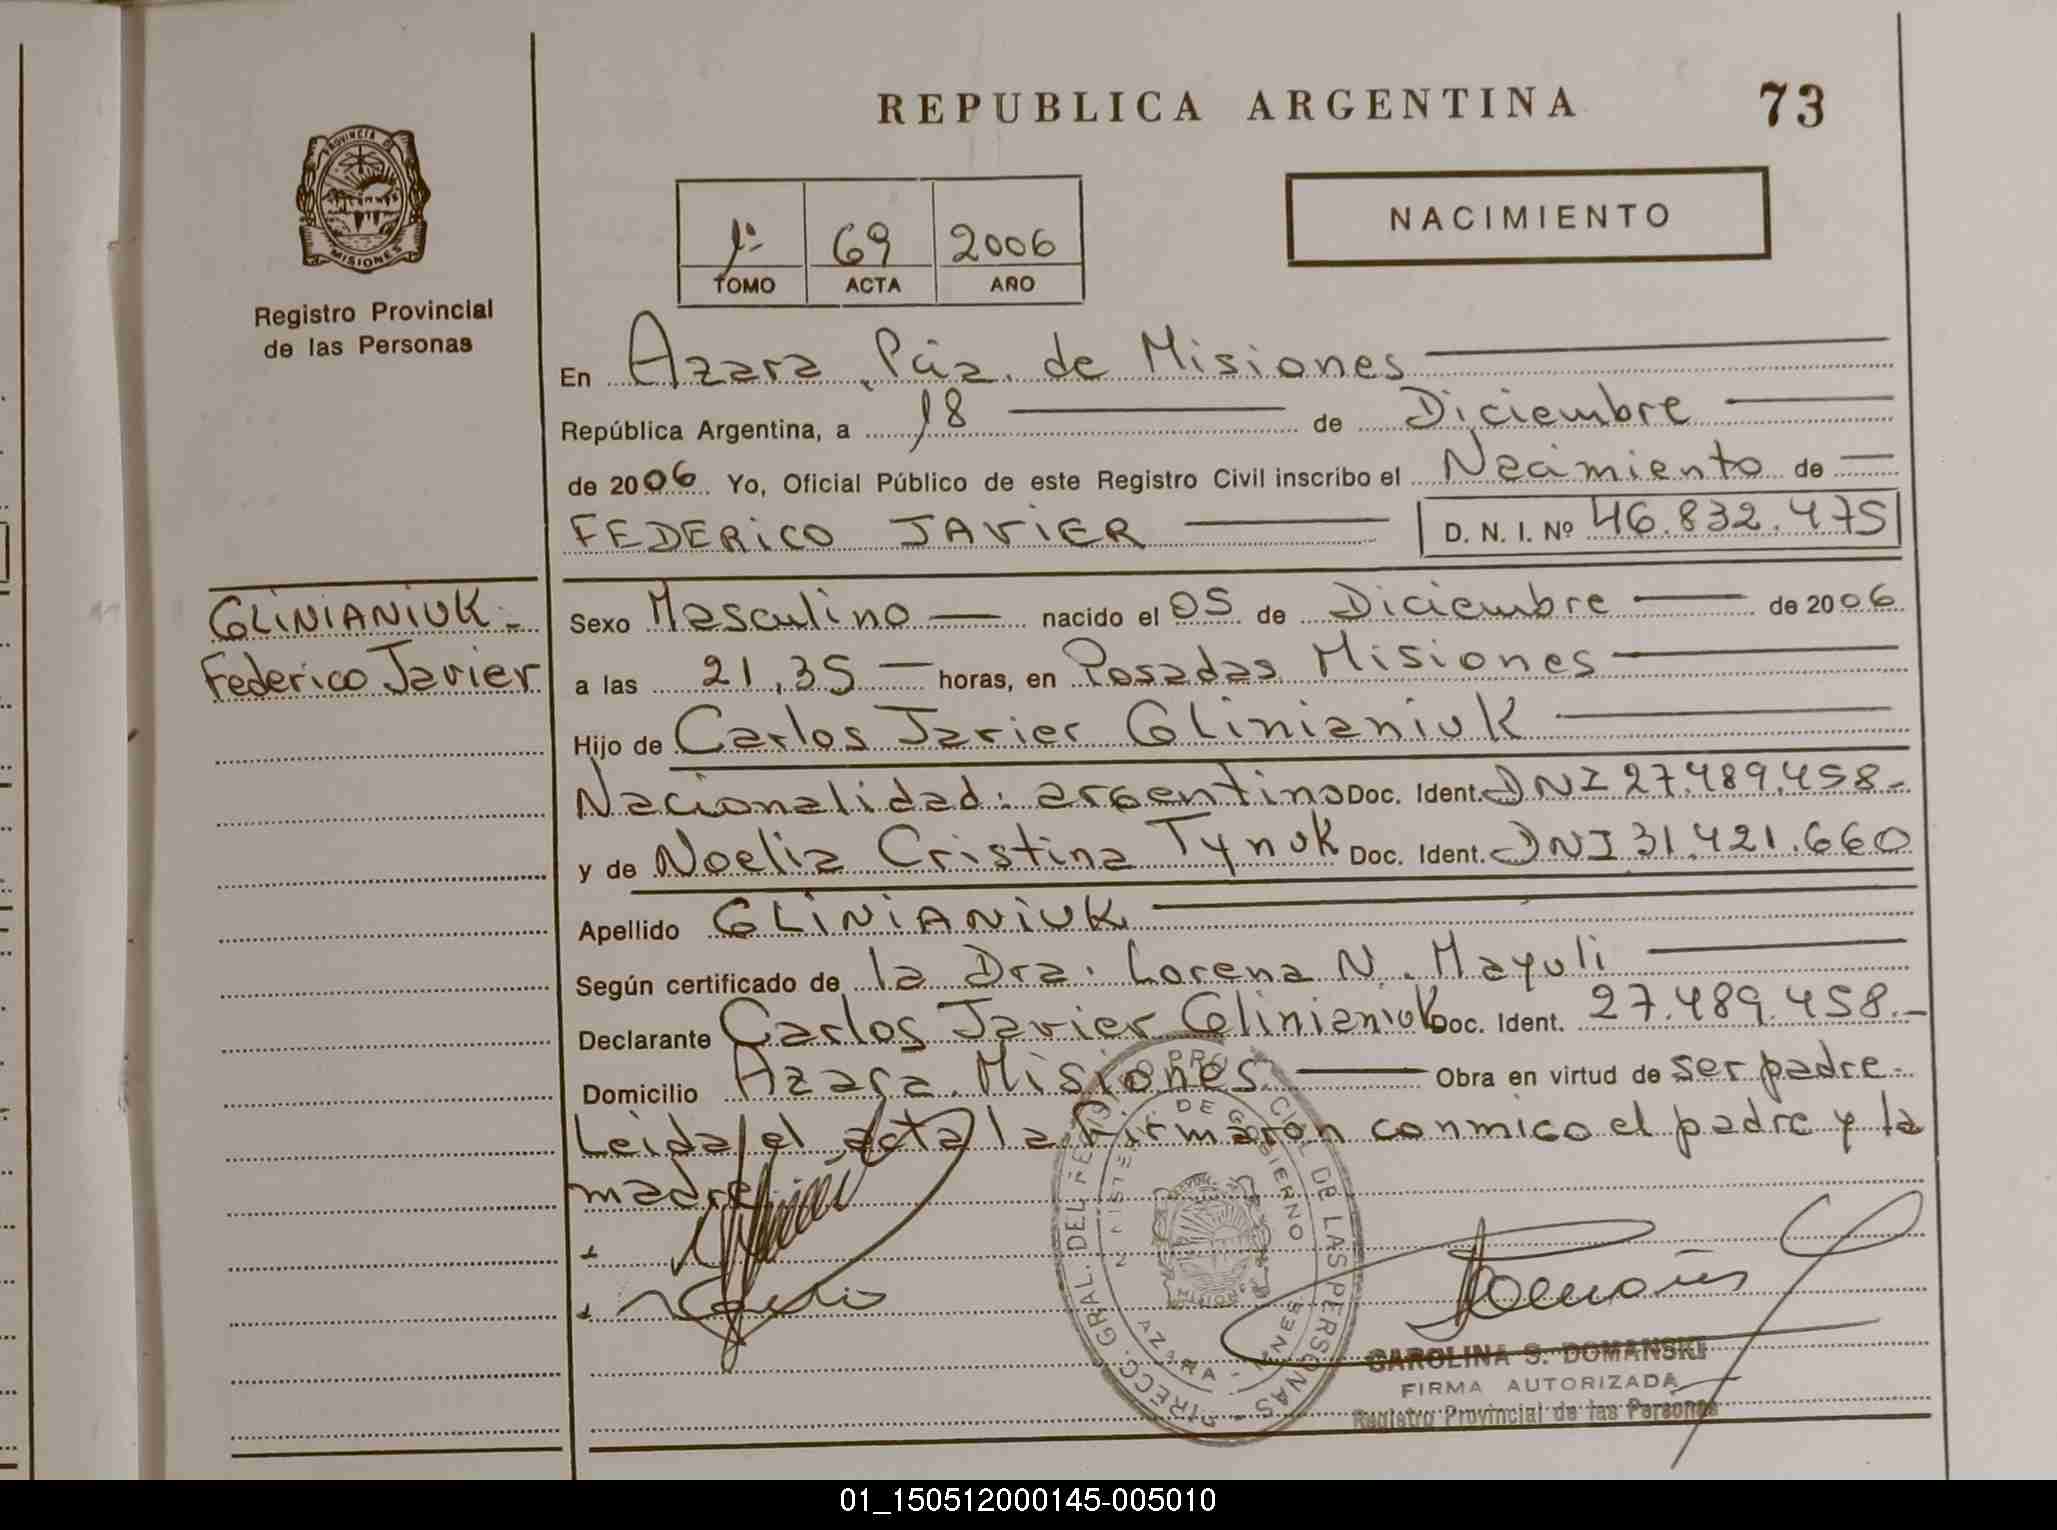 REPUBLICA ARGENTINA
73
PROVINCIA DE
MISIONES
Registro Provincial
de las Personas
1º
69
2006
TOMO
ACTA
AÑO
NACIMIENTO
En Azara, Pcia. de Misiones
República Argentina, a 18 de Diciembre
de 2006 Yo, Oficial Público de este Registro Civil inscribo el Nacimiento de
FEDERICO JAVIER D. N. I. Nº 46.832.475
GLINIANIUK-
Federico Javier
Sexo Masculino nacido el 05 de Diciembre de 2006
a las 21,35 horas, en Posadas Misiones
Hijo de Carlos Javier Glinianiuk
Nacionalidad: argentino Doc. Ident. DNI 27.489.458-
y de Noelia Cristina Tynuk Doc. Ident. DNI 31.421.660
Apellido GLINIANIUK
Según certificado de la Dra. Lorena N. Mayuli
Declarante Carlos Javier Glinianiuk Doc. Ident. 27.489.458.-
Domicilio Azara. Misiones Obra en virtud de ser padre-
Leida el acta la firmaron conmigo el padre y la
madre
DIRECC. GRAL. DEL REG. PROVINCIAL DE LAS PERSONAS
MINISTERIO DE GOBIERNO
AZARA - MISIONES
CAROLINA S. DOMANSKI
FIRMA AUTORIZADA
Registro Provincial de las Personas
01_150512000145-005010